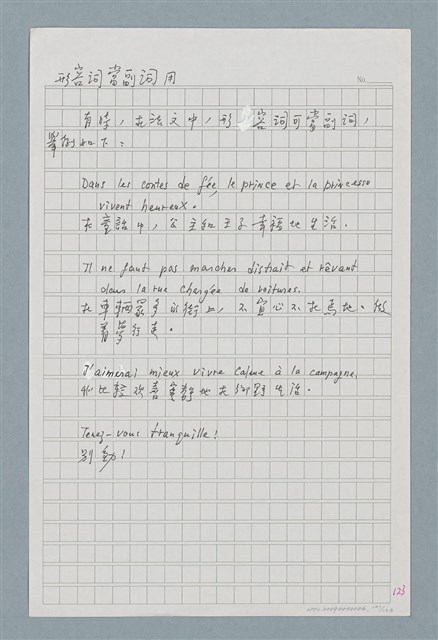 形容词當副词用
No.
有時，在法文中，形容词可當副词，
舉例如下：
Dans les contes de fée, le prince et la princesse
vivent heureux.
在童話中，公主和王子幸福地生活．
Il ne faut pas marcher distrait et rêvant
dans la rue chargée de voitures.
在車輛眾多的街上，不宜心不在焉地、做
着夢行走。
J'aimerai mieux vivre calme à la campagne.
我比較喜歡靜地在鄉野生活。
Tenez-vous tranquille!
別動!
123